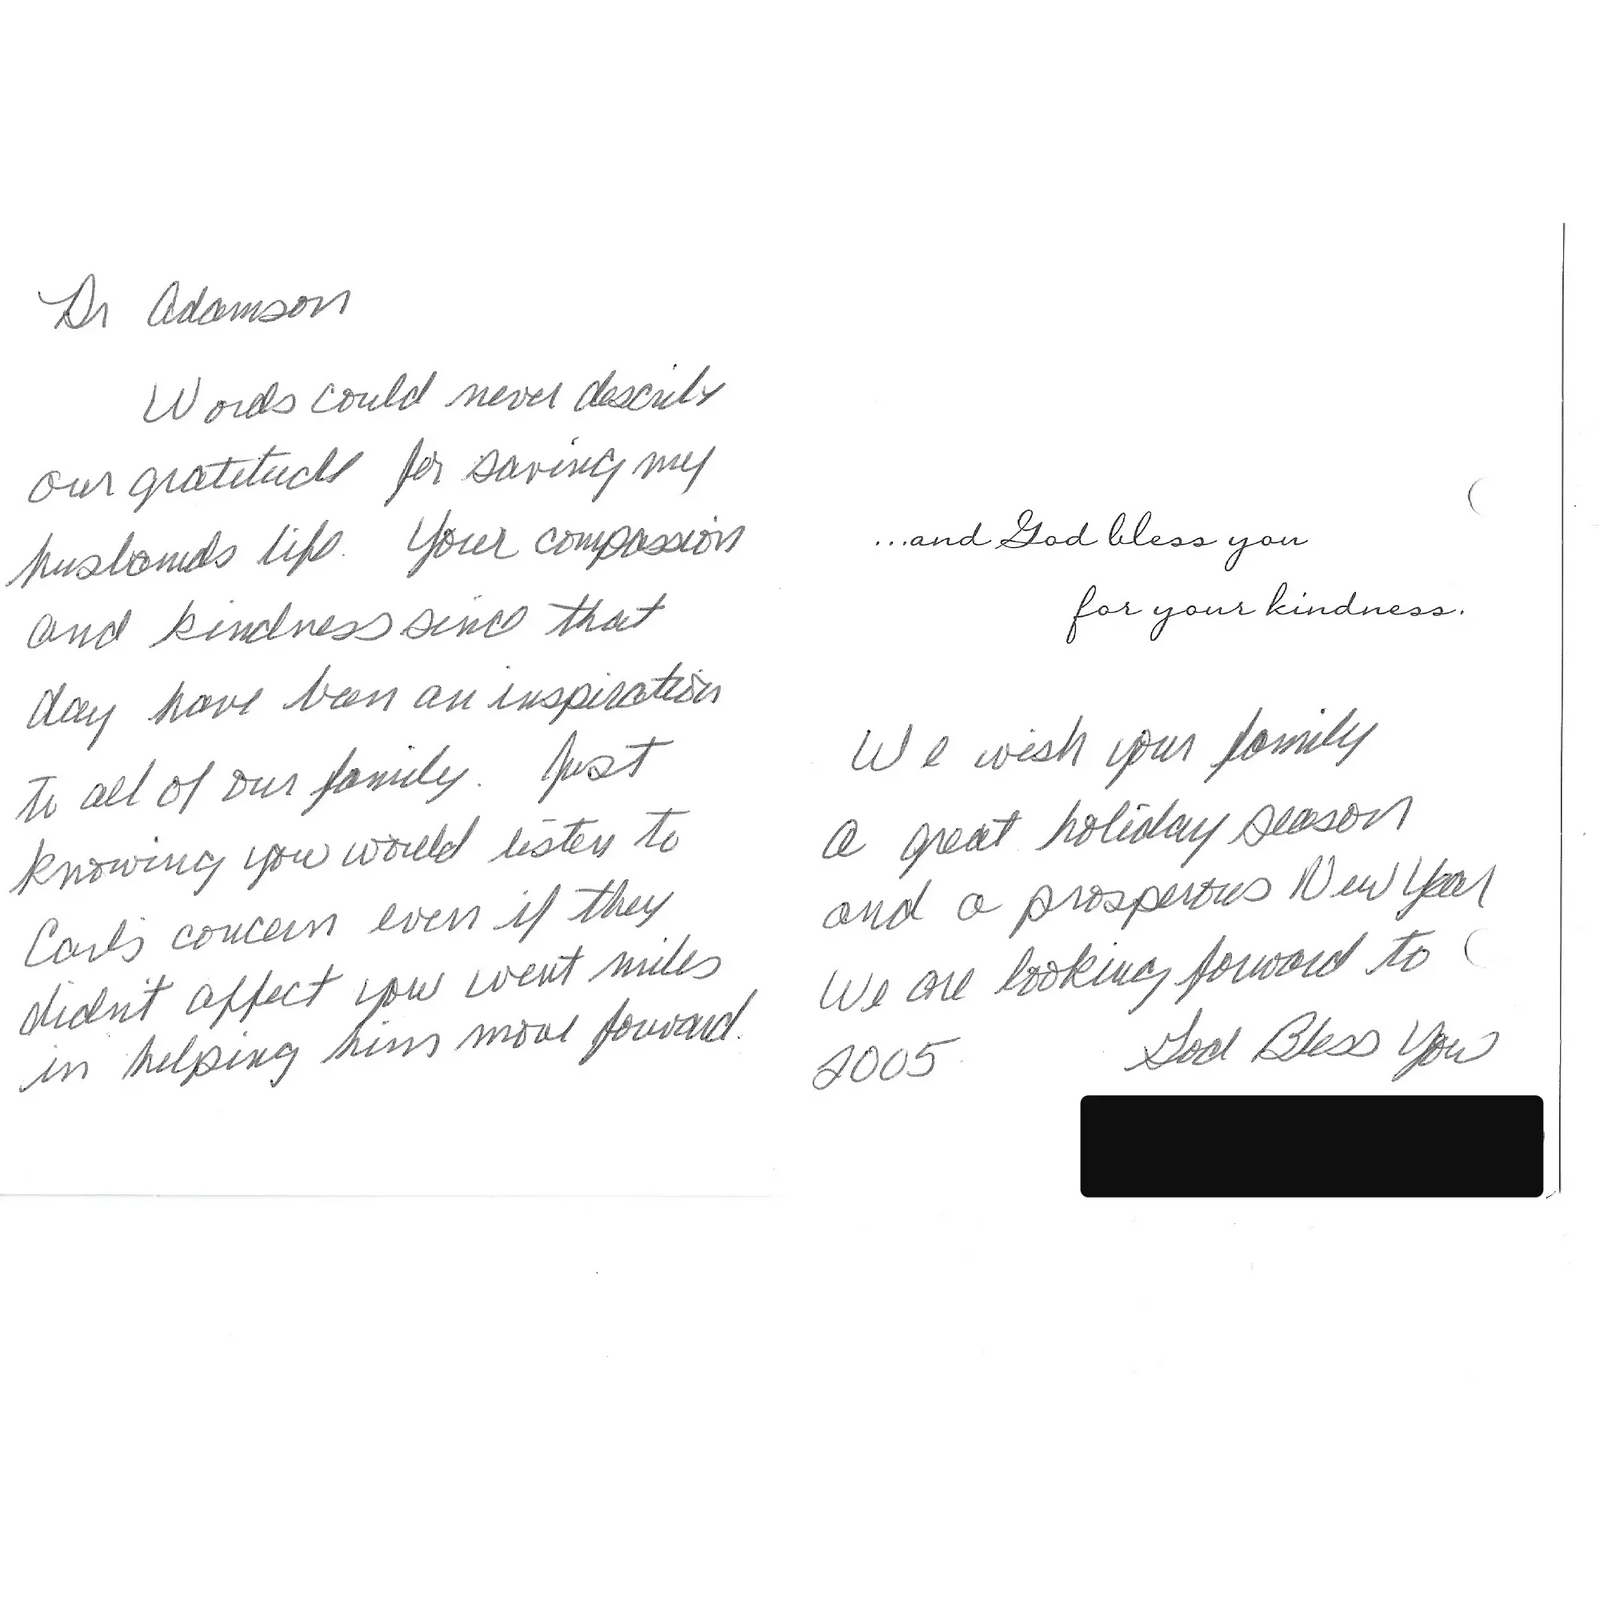 Dr Adamson
Words could never describe
our gratitude for saving my
husbands life. Your compassion
and kindness since that
day have been an inspiration
to all of our family. Just
knowing you would listen to
Carl's concern even if they
didn't affect you went miles
in helping him move forward.
...and God bless you
for your kindness.
We wish your family
a great holiday season
and a prosperous New Year
We are looking forward to
2005 God Bless You